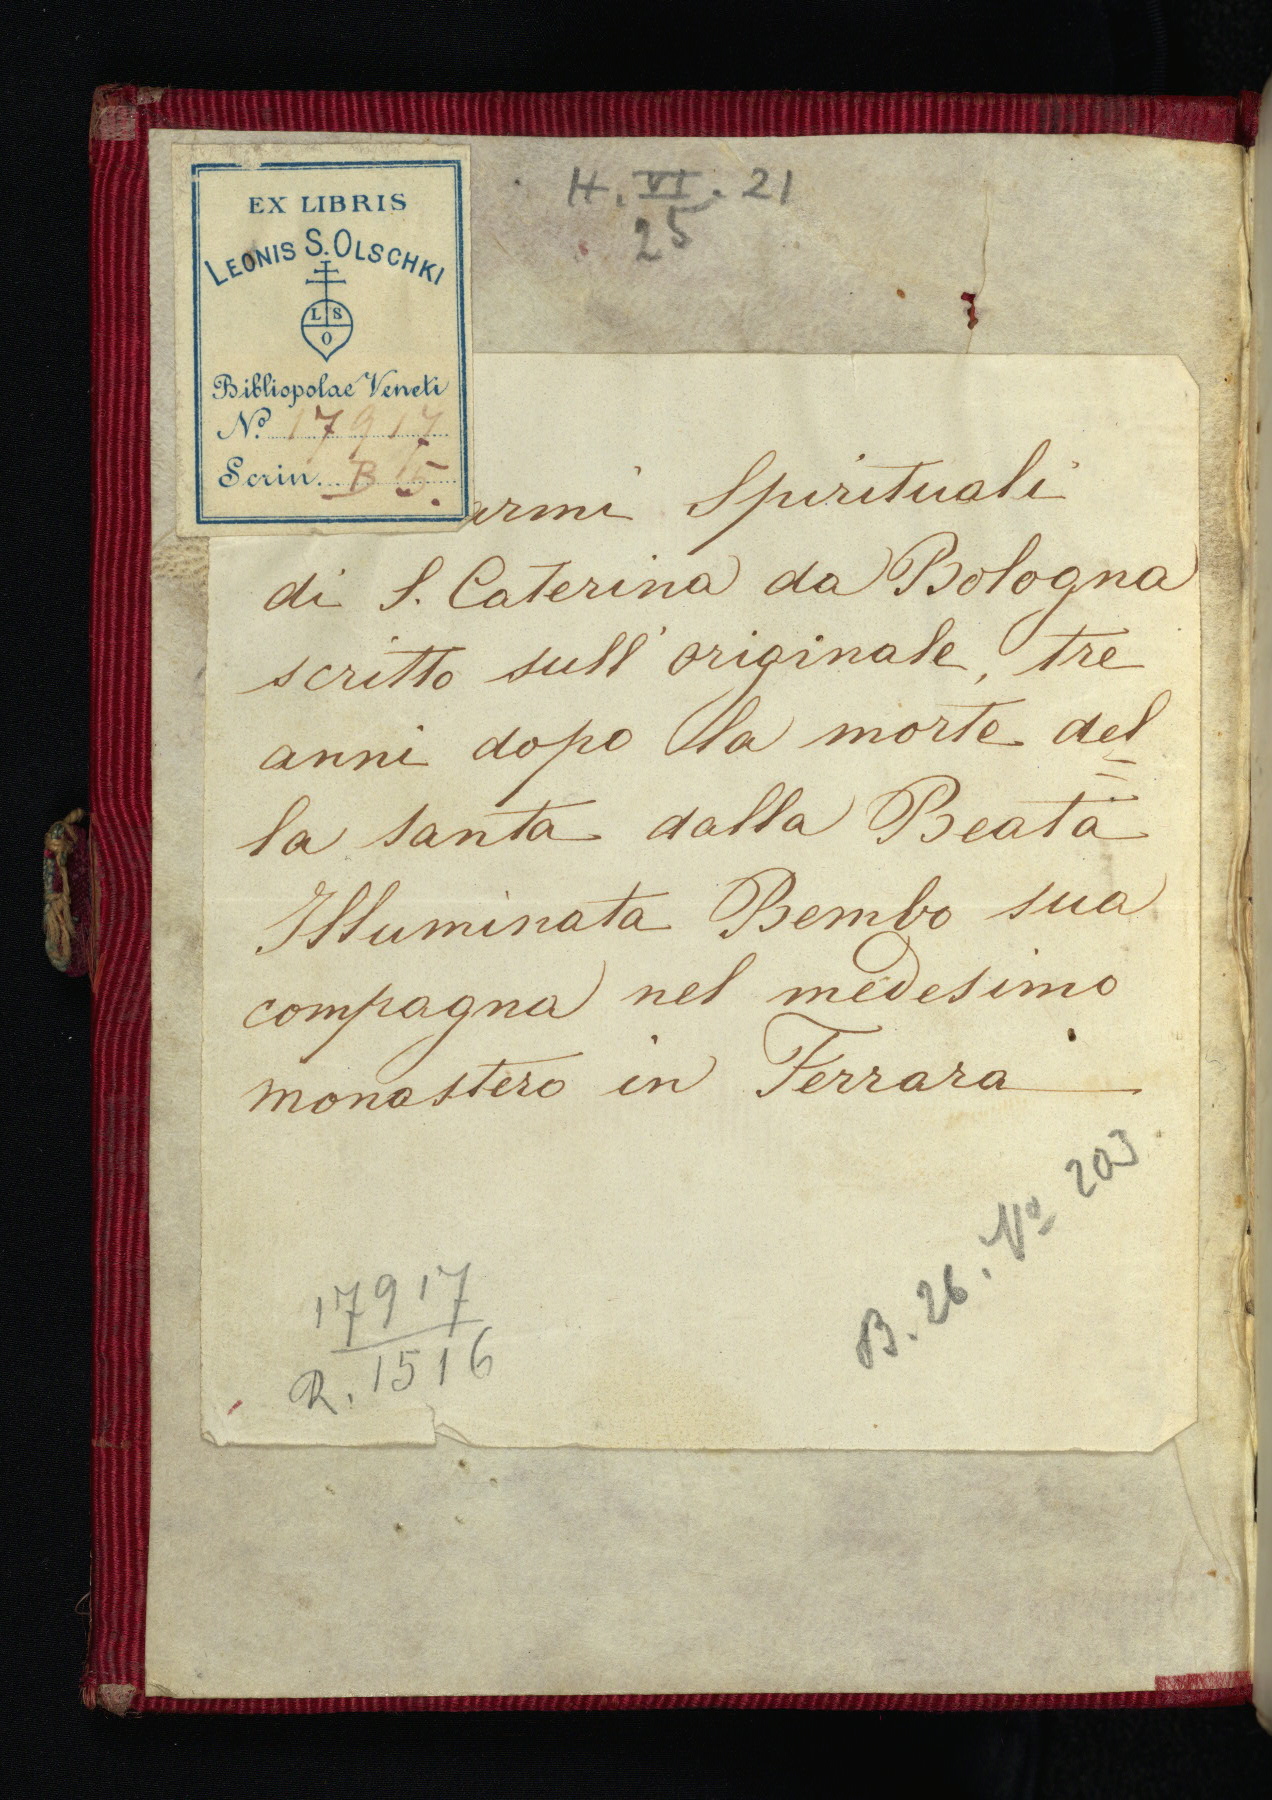 H. VI. 21
25
EX LIBRIS
LEONIS S. OLSCHKI
L S
O
Bibliopolae Veneti
No. 17917
Scrin. B 5.
armi Spirituali
di S. Caterina da Bologna
scritto sull' originale, tre
anni dopo la morte del=
la santa dalla Beata
Illuminata Bembo sua
compagna nel medesimo
monastero in Ferrara
B. 26. No 203
17917
R. 1516